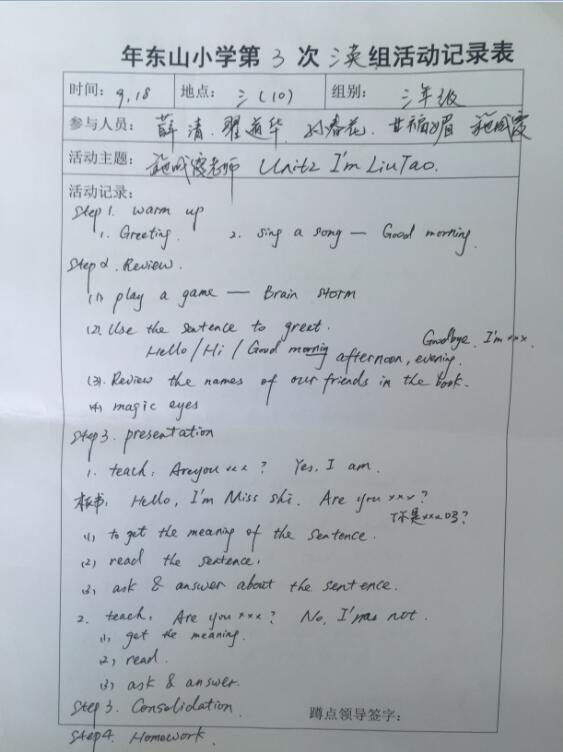 年东山小学第 3 次 三英组活动记录表
时间: 9.18 地点: 三(10) 组别: 三年级
参与人员: 薛清. 翟道华. 孙春花. 甘福娟
活动主题: 老师 Unit2 I'm Liu Tao.
活动记录:
Step 1. warm up
1. Greeting. 2. sing a song — Good morning.
Step 2. Review.
(1) play a game — Brain storm
(2). Use the sentence to greet.
Goodbye. I'm xxx.
Hello / Hi / Good morning afternoon, evening.
(3). Review the names of our friends in the book.
(4) magic eyes
Step 3. presentation
1. teach: Are you xxx? Yes, I am.
板书: Hello, I'm Miss Shi. Are you xxx?
你是xxx吗?
(1) to get the meaning of the sentence.
(2) read the sentence.
(3) ask & answer about the sentence.
2. teach: Are you xxx? No, I'm not.
(1) get the meaning.
(2) read.
(3) ask & answer.
Step 3. Consolidation.
蹲点领导签字:
Step 4. Homework.